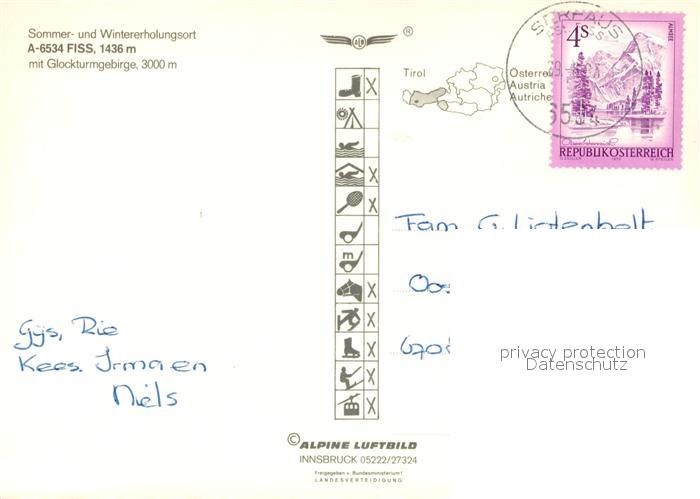 Sommer- und Wintererholungsort
A-6534 FISS, 1436 m
mit Glockturmgebirge, 3000 m
®
Tirol
Österre
Austria
Autriche
SERFAUS
6534
4S
ALMSEE
REPUBLIK ÖSTERREICH
m
X
X
X
X
X
X
X
X
Fam G. Ligtenbelt
Oos
670
Gijs, Rie
Kees, Irma en
Niels
privacy protection
Datenschutz
© ALPINE LUFTBILD
INNSBRUCK 05222/27324
Freigegeben v. Bundesministerium f.
LANDESVERTEIDIGUNG